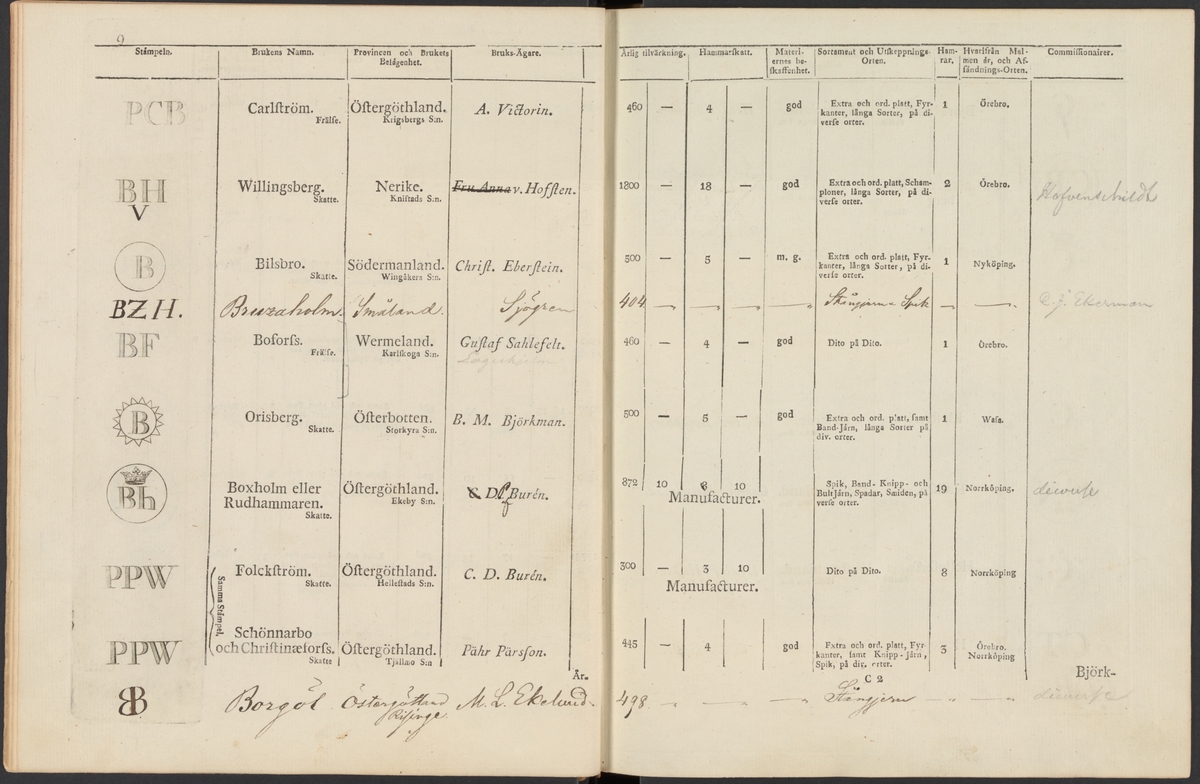 9
Stämpeln. Brukens Namn. Provincen och Brukets Belägenhet. Bruks-Ägare. Årlig tilvärkning. Hammarskatt. Materiernes beskaffenhet. Sortament och Utskeppnings-Orten. Hamrar. Hvarifrån Malmen är, och Afsändnings-Orten. Commissionairer.
PCB Carlström. Frälse. Östergöthland. Krigsbergs S:n. A. Victorin. 460 — 4 — god Extra och ord. platt, Fyrkanter, långa Sorter, på diverse orter. 1 Örebro.
BH V Willingsberg. Skatte. Nerike. Knistads S:n. Fru Anna v. Hofsten. 1800 — 18 — god Extra och ord. platt, Schamploner, långa Sorter, på diverse orter. 2 Örebro. Hofvenschildt
B Bilsbro. Skatte. Södermanland. Wingåkers S:n. Christ. Eberstein. 500 — 5 — m. g. Extra och ord. platt, Fyrkanter, långa Sorter, på diverse orter. 1 Nyköping.
BZH. Bruzaholm. Småland. Sjögren 404 — — — — Stångjern o Spik — — C. J. Ekerman
BF Boforss. Frälse. Wermeland. Karlskoga S:n. Gustaf Sahlefelt. 460 — 4 — god Dito på Dito. 1 Örebro.
B Orisberg. Skatte. Österbotten. Storkyra S:n. B. M. Björkman. 500 — 5 — god Extra och ord. platt, samt Band-Järn, långa Sorter på div. orter. 1 Wasa.
Bh Boxholm eller Rudhammaren. Skatte. Östergöthland. Ekeby S:n. D. Burén. 872 10 8 10 Manufacturer. Spik, Band- Knipp- och BultJärn, Spadar, Smiden, på diverse orter. 19 Norrköping. diverse
Samma Stämpel.
PPW Folckström. Skatte. Östergöthland. Hellestads S:n. C. D. Burén. 300 — 3 10 Manufacturer. Dito på Dito. 8 Norrköping
PPW Schönnarbo och Christinæforss. Skatte Östergöthland. Tjällmo S:n Pähr Pärsson. 445 — 4 god Extra och ord. platt, Fyrkanter, samt Knipp-järn, Spik, på div. orter. 3 Örebro. Norrköping
Är. C 2 Björk-
BB Borgöl Östergöttland Risinge M. L. Ekelund 498 — — — — Stångjern — — diverse